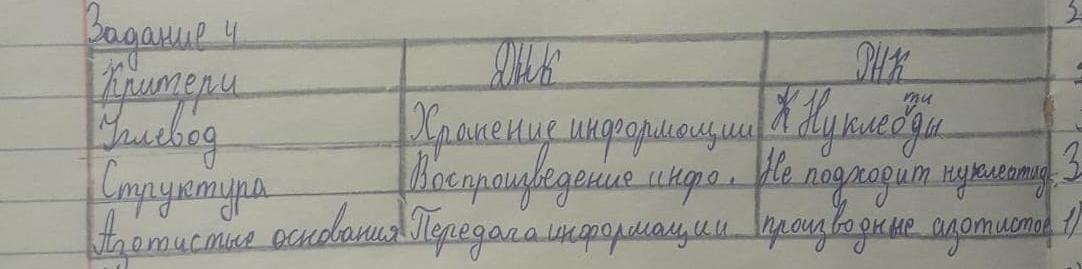 Задание 4
Критери ДНК РНК
Углевод Хранение информации Нуклеотиды
Структура Воспроизведение инфо. Не подходит нуклеотид.
Азотистые основания Передача информации производные азотистое